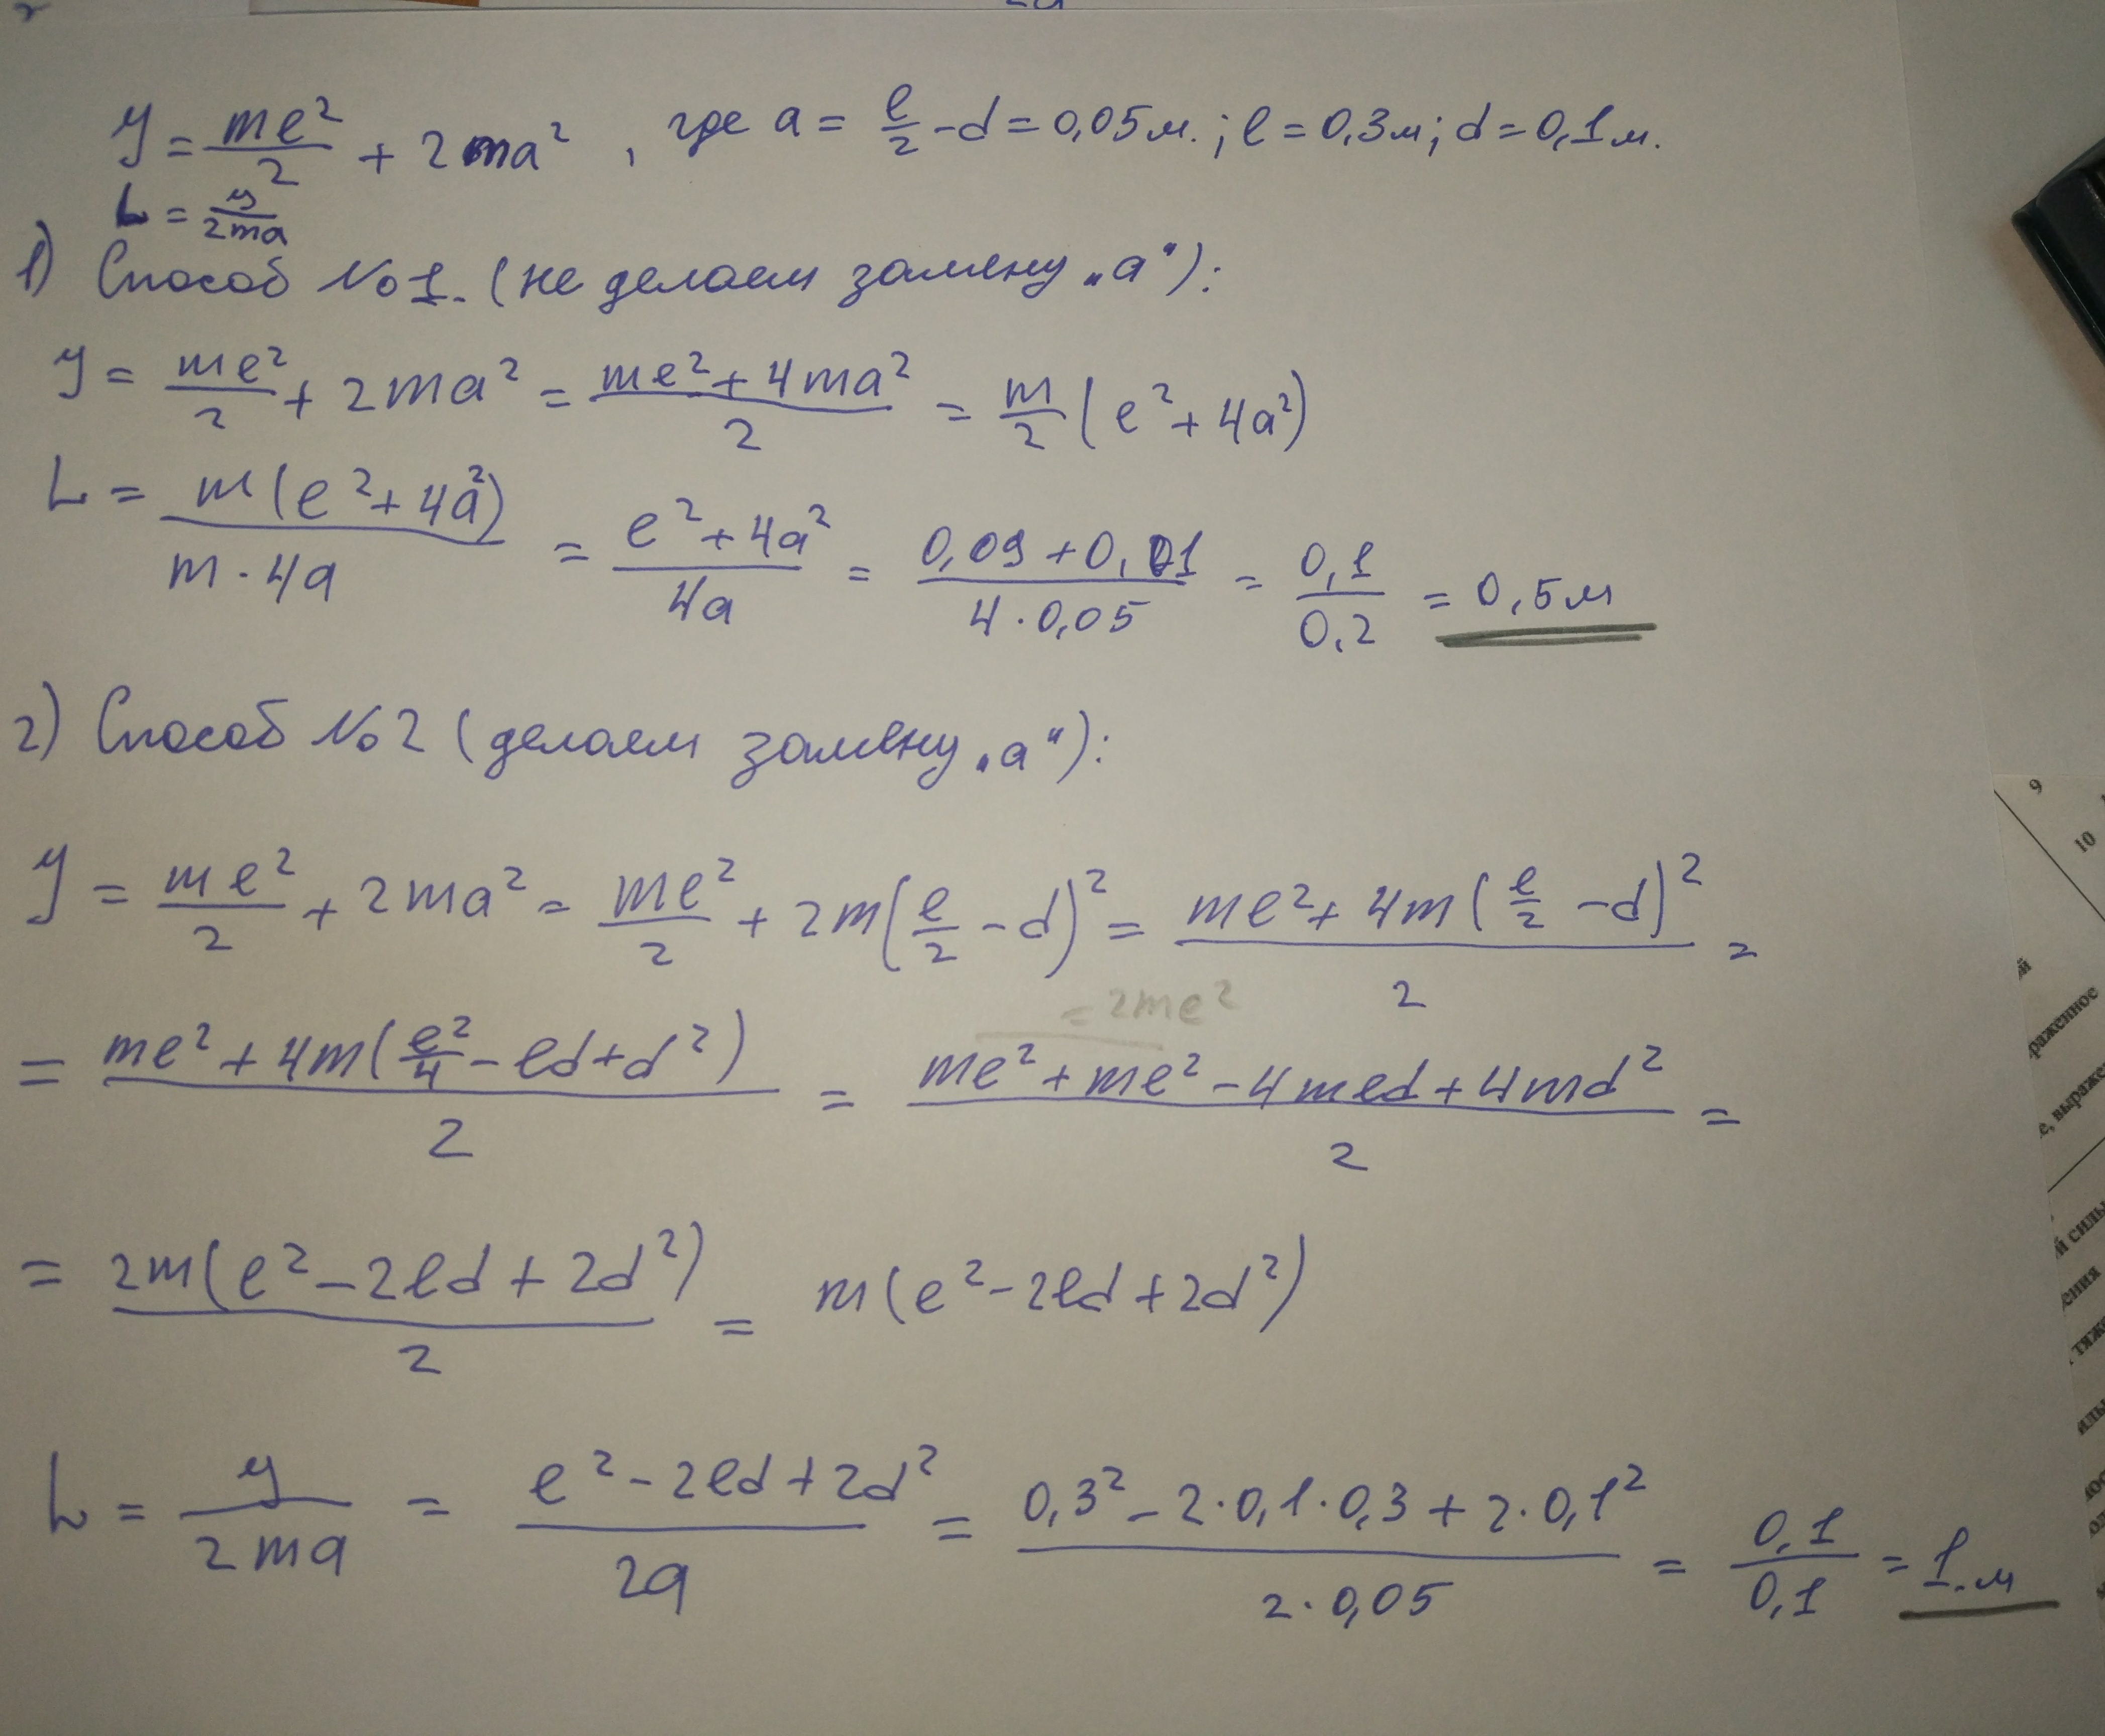 y = mℓ²/2 + 2ma², где a = ℓ/2 - d = 0,05м.; ℓ = 0,3м; d = 0,1м.
L = y/2ma
1) Способ №1. (не делаем замену „a“):
y = mℓ²/2 + 2ma² = (mℓ² + 4ma²)/2 = m/2 (ℓ² + 4a²)
L = m(ℓ² + 4a²)/(m·4a) = (ℓ² + 4a²)/4a = (0,09 + 0,01)/(4·0,05) = 0,1/0,2 = 0,5м
2) Способ №2 (делаем замену „a“):
y = mℓ²/2 + 2ma² = mℓ²/2 + 2m(ℓ/2 - d)² = (mℓ² + 4m(ℓ/2 - d)²)/2 =
= 2mℓ²
= (mℓ² + 4m(ℓ²/4 - ℓd + d²))/2 = (mℓ² + mℓ² - 4mℓd + 4md²)/2 =
= 2m(ℓ² - 2ℓd + 2d²)/2 = m(ℓ² - 2ℓd + 2d²)
L = y/2ma = (ℓ² - 2ℓd + 2d²)/2a = (0,3² - 2·0,1·0,3 + 2·0,1²)/(2·0,05) = 0,1/0,1 = 1.м
9
10